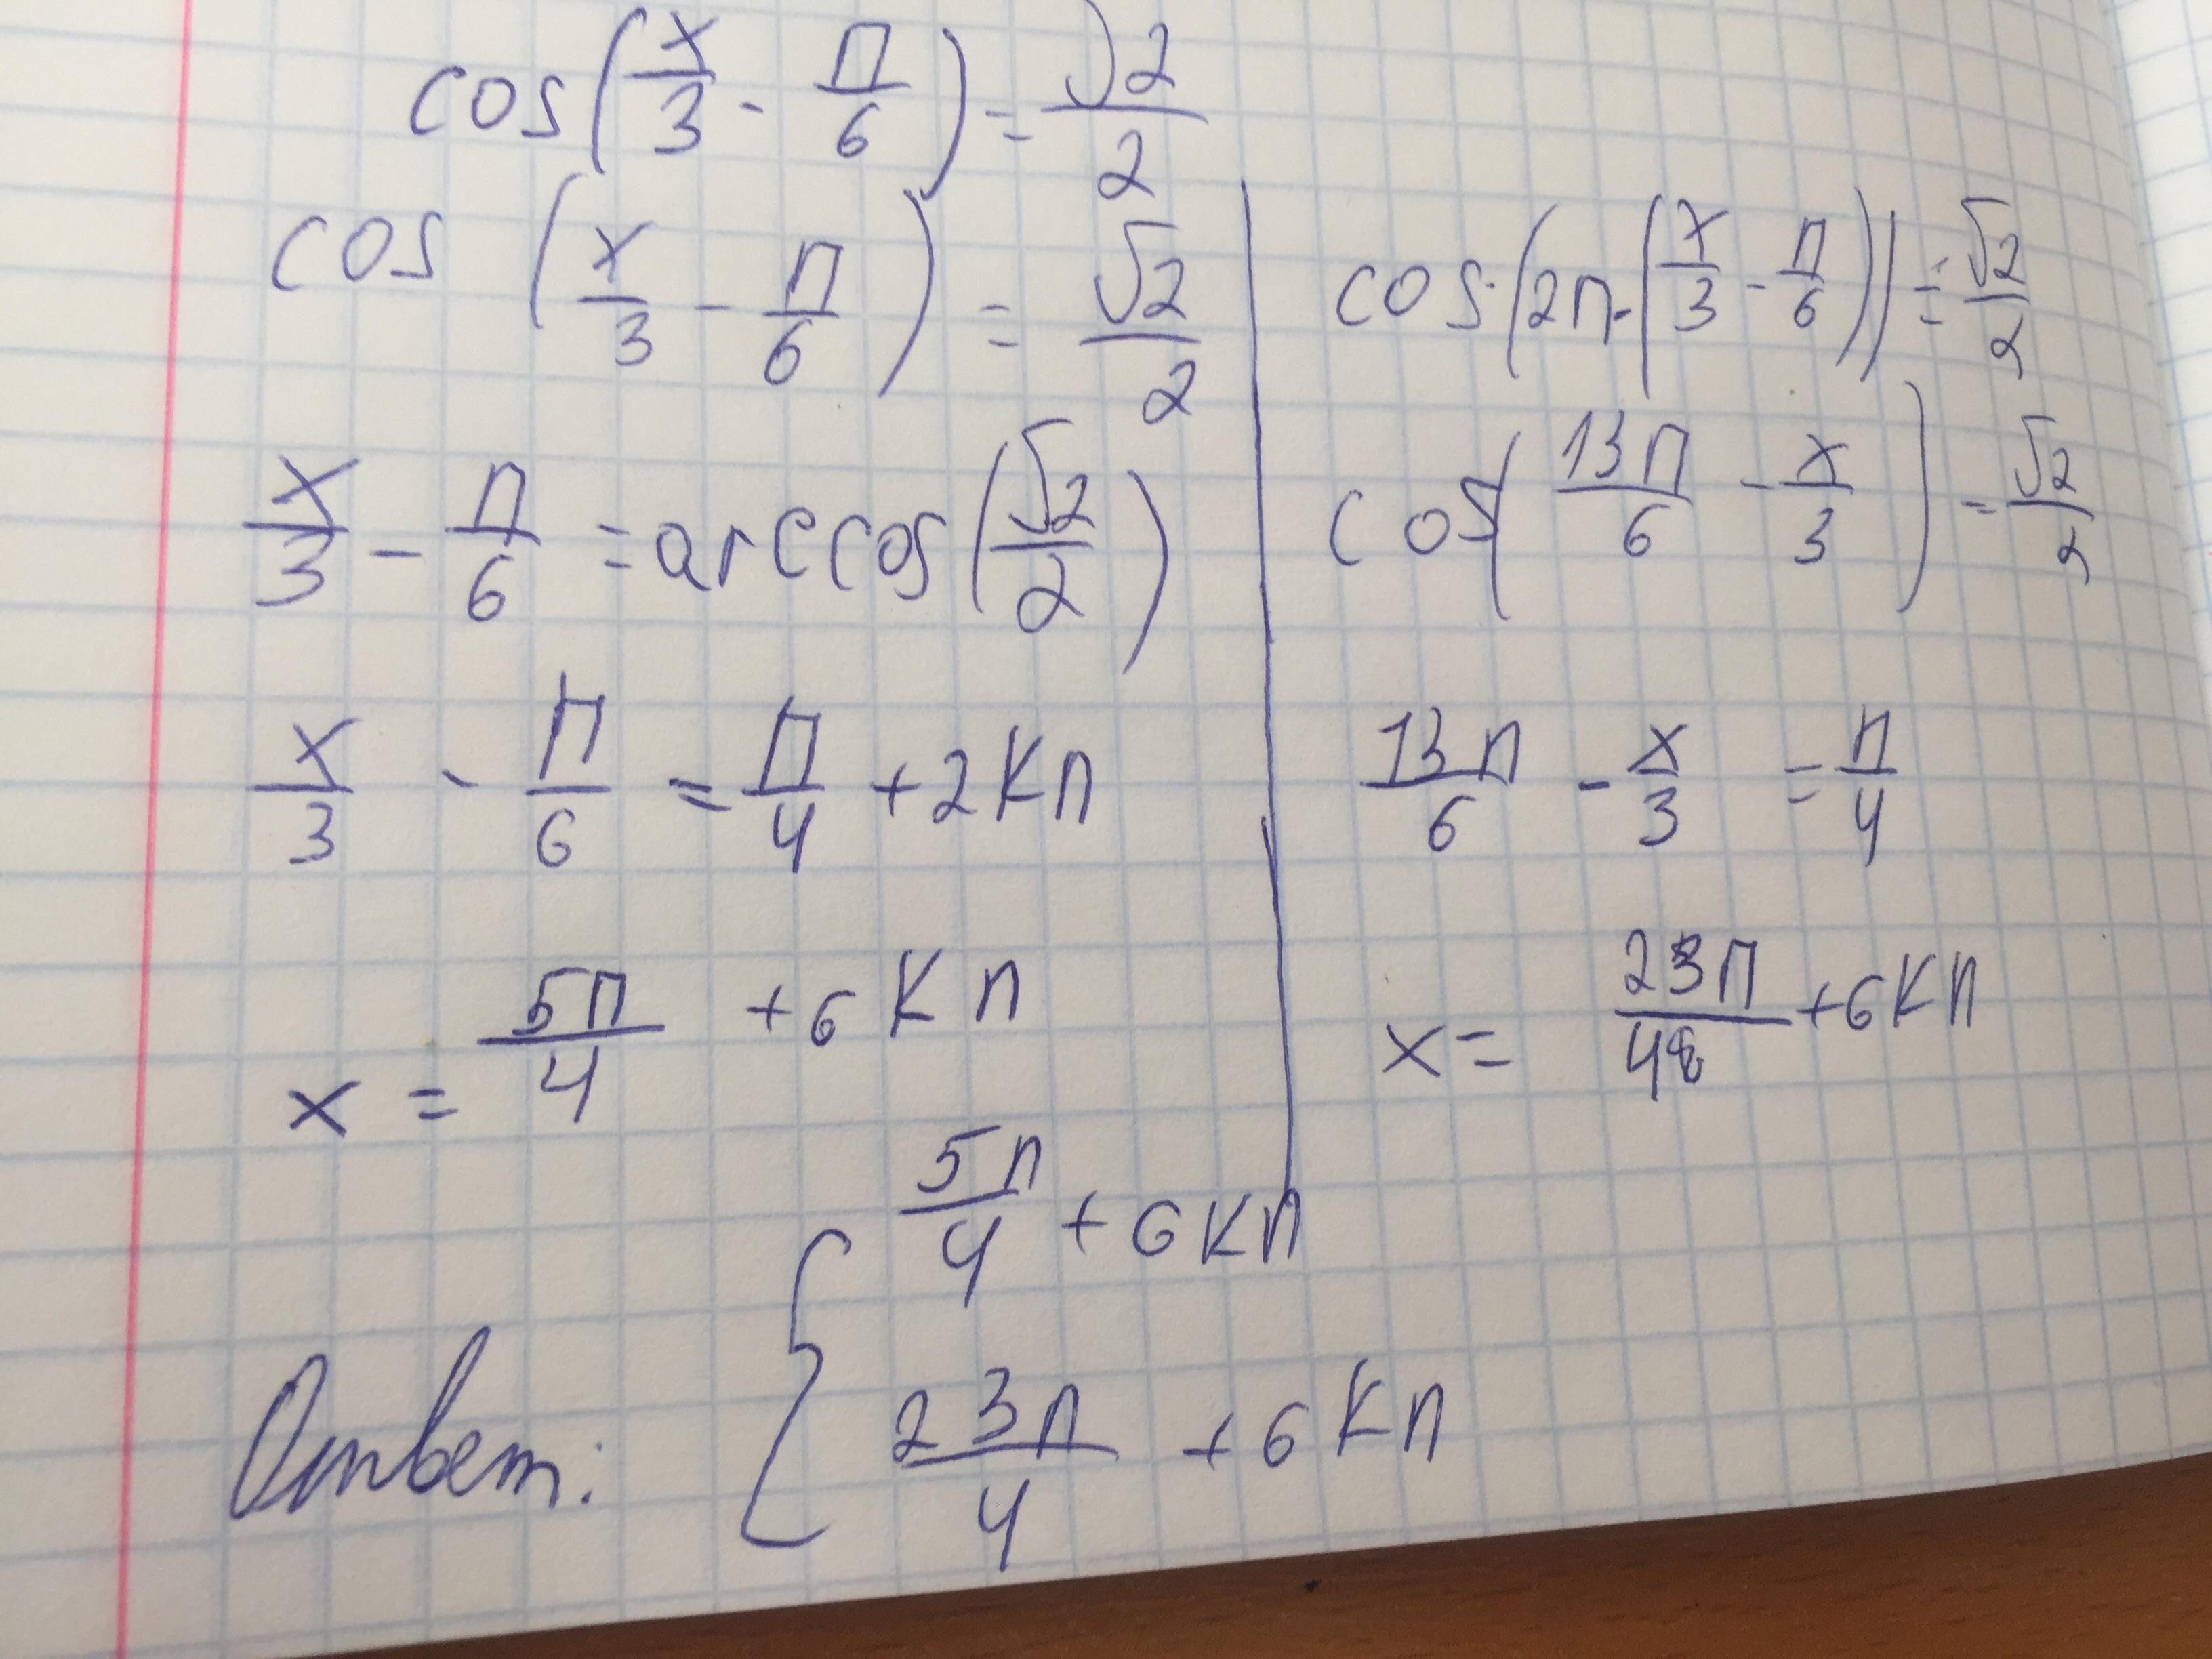 cos(x/3 - π/6) = √2/2
cos (x/3 - π/6) = √2/2
x/3 - π/6 = arccos(√2/2)
x/3 - π/6 = π/4 + 2Kπ
x = 5π/4 + 6Kπ
cos(2π-(x/3 - π/6)) = √2/2
cos(13π/6 - x/3) = √2/2
13π/6 - x/3 = π/4
x = 23π/4 + 6Kπ
Ответ: { 5π/4 + 6Kπ
23π/4 + 6Kπ